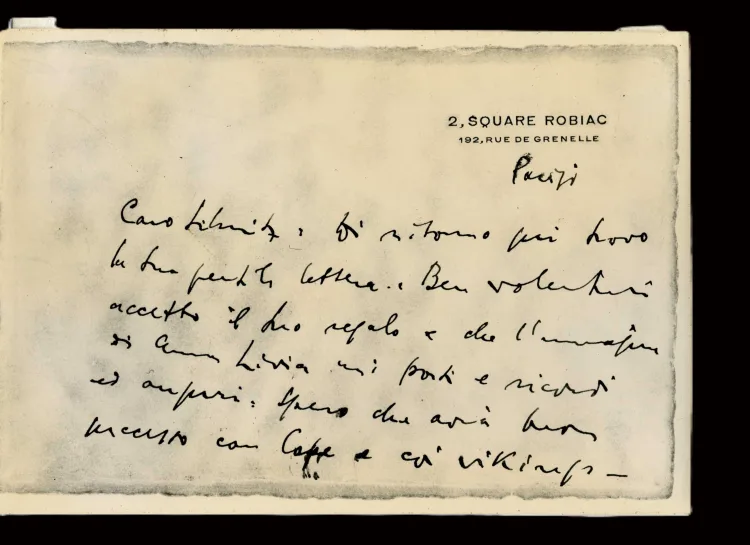 2, SQUARE ROBIAC
192, RUE DE GRENELLE
Parigi
Caro Schmitz: Di ritorno qui trovo
la Sua gentile lettera. Ben volentieri
accetto il Suo regalo e che l'immagine
di Anna Livia mi porti e ricordi
ed auguri: Spero che avrà buon
successo con e coi vikings —